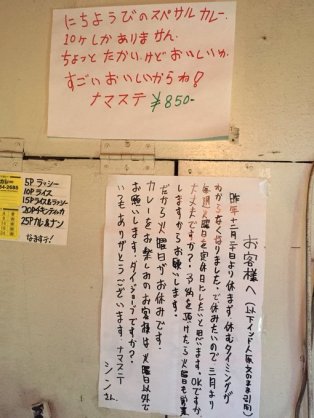 にちようびのスペサルカレー。
10ヶしかありません。
ちょっとたかい、けどおいしいが、
すごいおいしいからね!
ナマステ ¥850-
5P ラッシー
10P ライス
15P ライス&ラッシー
20P チキンティカ
25P カレー&ナン
なります!
お客様へ（以下インド人原文のまま引用）
昨年十二月二十日より休まず、休むタイミングが
わからなくなりました。ご休みたいので三月より
毎週火曜日を定休日にしたいと思います。OKですか
大丈夫ですか?予約を頂けたら火曜日も営業
しますからお願いします。
だから火曜日がお休みです。
カレーをお楽しみのお客様は火曜日以外で
お願いします。ダイジョーブですか?
いつもありがとうございます ナマステ
シンさん